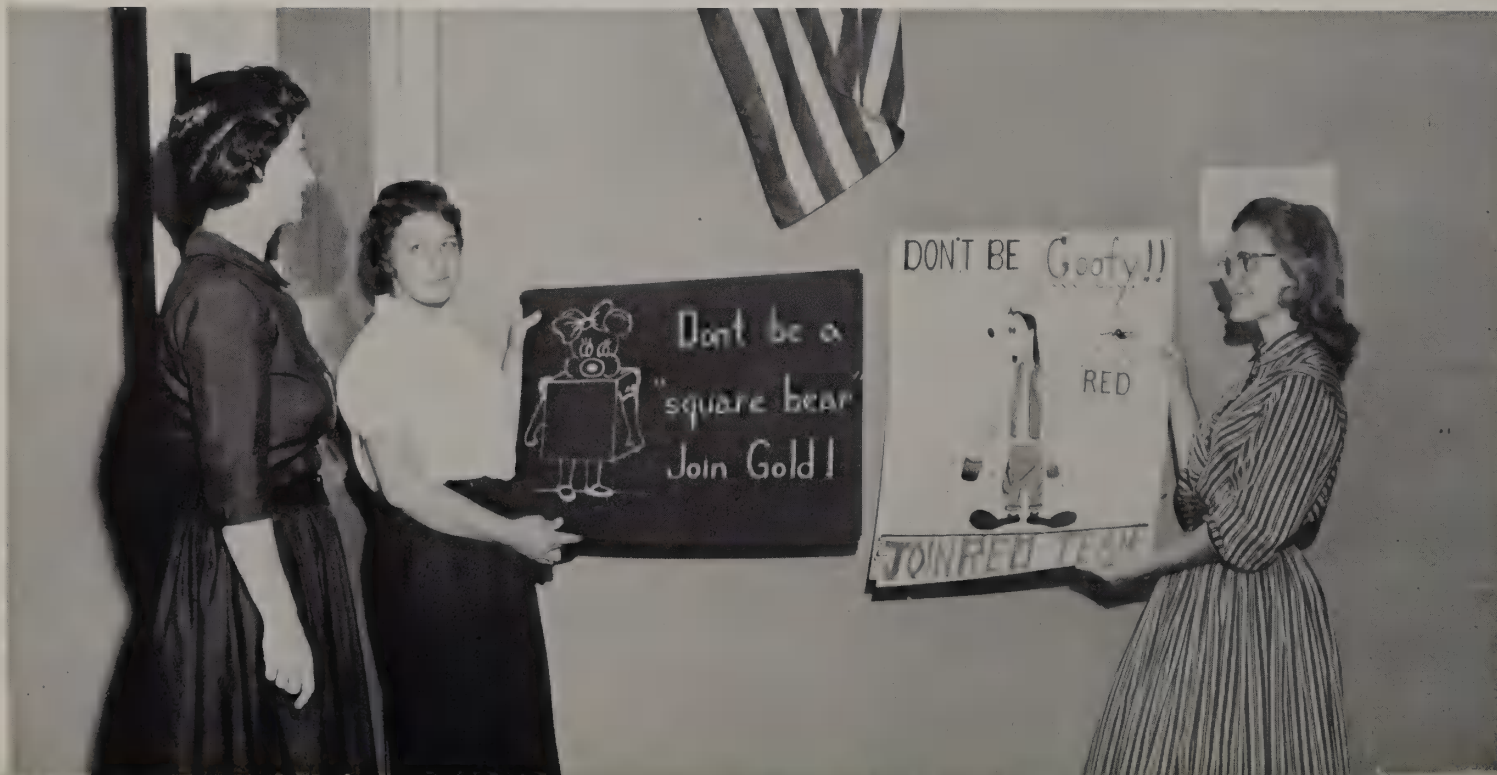 Dont be a
"square bear"
Join Gold!
DON'T BE Goofy!!
RED
JOIN RED TEAM